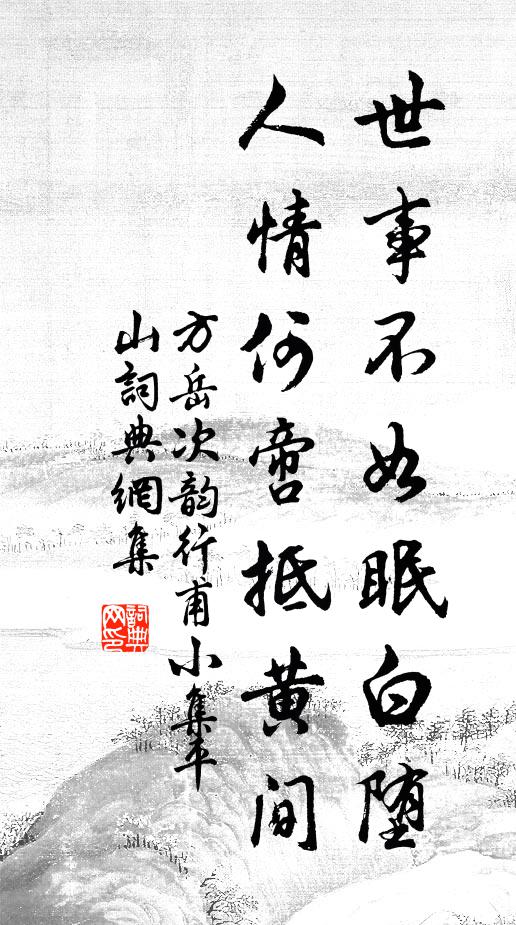 世事不如眠白堕
人情何啻抵黄间
方岳次韵行甫小集平
山詞典網集
詞典
网印